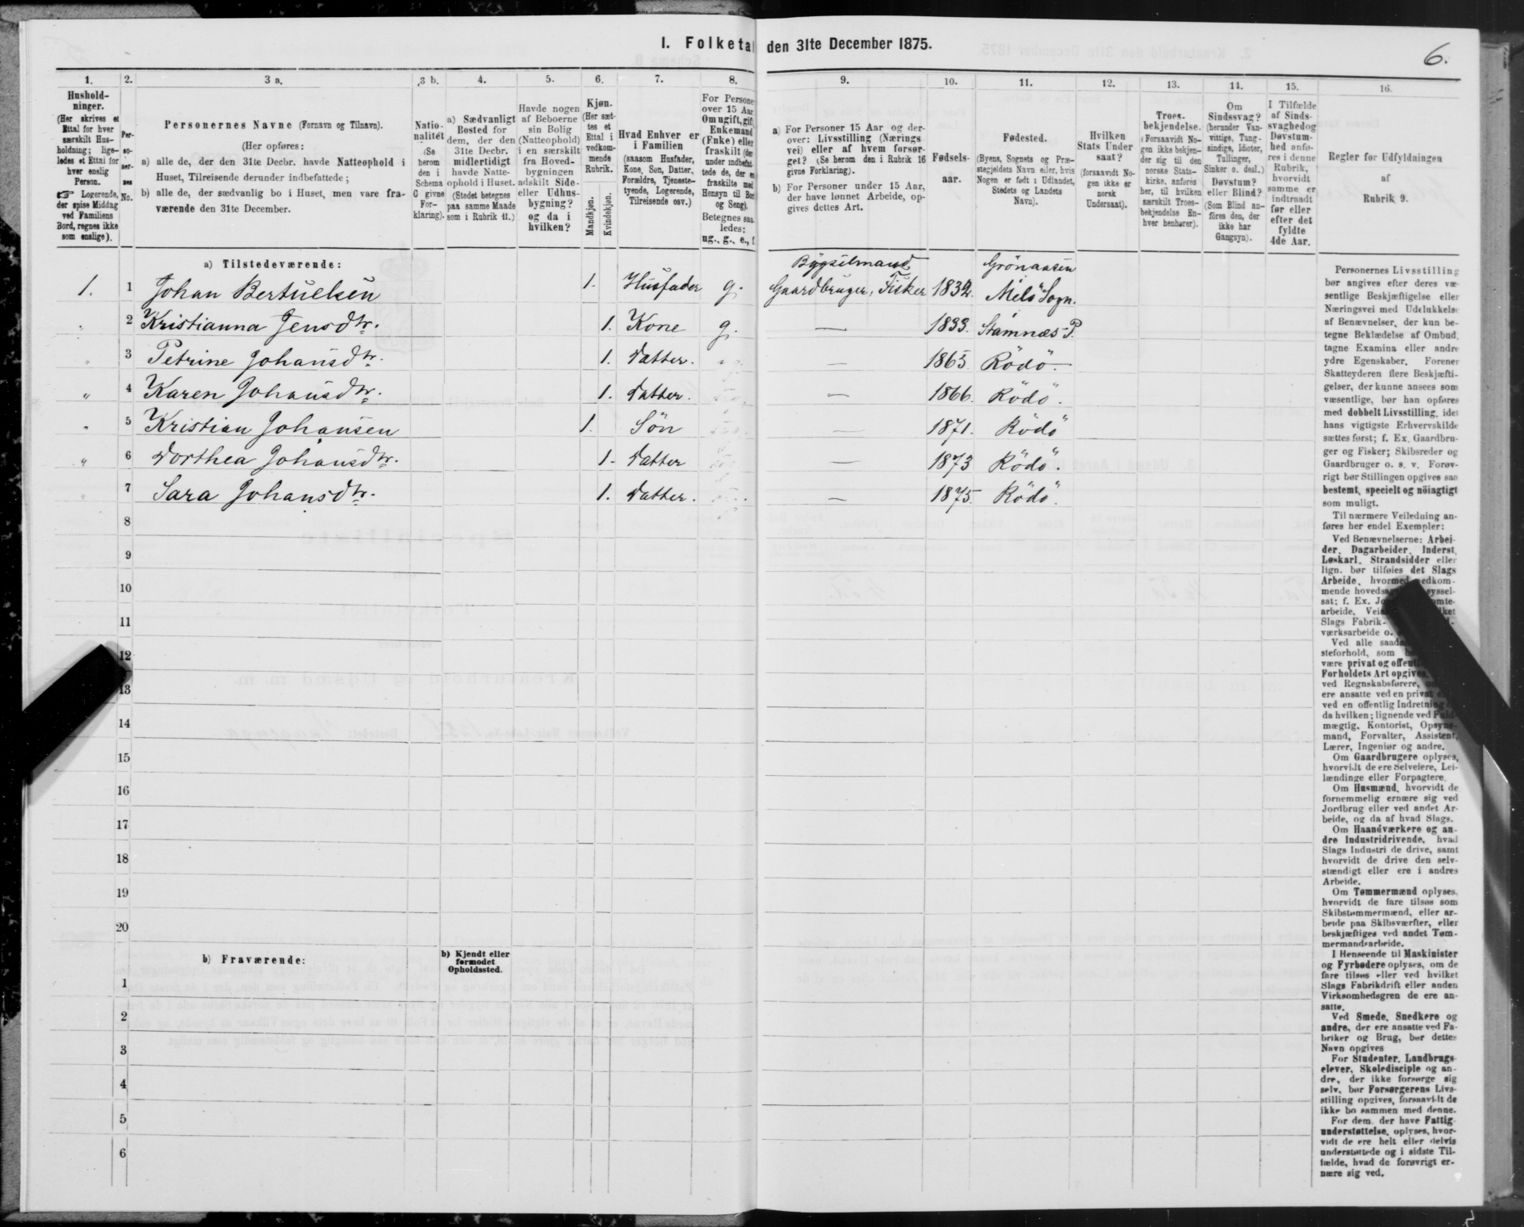 I. Folketal den 31te December 1875.
6.
1.
Hushold-
ninger.
(Her skrives et
Ettal for hver
særskilt Hus-
holdning; lige-
ledes et Ettal for
hver enslig
Person.
☞ Logerende,
der spise Middag
ved Familiens
Bord, regnes ikke
som enslige).
2.
Per-
so-
ner-
nes
No.
3 a.
Personernes Navne (Fornavn og Tilnavn).
(Her opføres:
a) alle de, der den 31te Decbr. havde Natteophold i
Huset, Tilreisende derunder indbefattede;
b) alle de, der sædvanlig bo i Huset, men vare fra-
værende den 31te December.
3 b.
Natio-
nalitet
(Se
herom
den i
Schema
C givne
For-
klaring).
4.
a) Sædvanligt
Bosted for
dem, der den
31te Decbr.
midlertidigt
havde Natte-
ophold i Huset.
(Stedet betegnes
paa samme Maade
som i Rubrik 11.)
5.
Havde nogen
af Beboerne
sin Bolig
(Natteophold)
i en særskilt
fra Hoved-
bygningen
adskilt Side-
eller Udhus-
bygning?
og da i
hvilken?
6.
Kjøn.
(Her sæt-
tes et
Ettal i
vedkom-
mende
Rubrik.
Mandkjøn.
Kvindekjøn.
7.
Hvad Enhver er
i Familien
(saasom Husfader,
Kone, Søn, Datter,
Forældre, Tjeneste-
tyende, Logerende,
Tilreisende osv.)
8.
For Persone
over 15 Aar
Om ugift, gift
Enkemand
(Enke) eller
fraskilt (der
under indbefat
tede de, der e
fraskilte med
Hensyn til Bo
og Seng).
Betegnes saa
ledes:
ug., g., e., f
9.
a) For Personer 15 Aar og der-
over: Livsstilling (Nærings
vei) eller af hvem forsør-
get? (Se herom den i Rubrik 16
givne Forklaring).
b) For Personer under 15 Aar,
der have lønnet Arbeide, op-
gives dettes Art.
10.
Fødsels-
aar.
11.
Fødested.
(Byens, Sognets og Præ-
stegjeldets Navn eller, hvis
Nogen er født i Udlandet,
Stedets og Landets
Navn).
12.
Hvilken
Stats Under
saat?
(forsaavidt No-
gen ikke er
norsk
Undersaat).
13.
Troes-
bekjendelse.
(Forsaavidt No-
gen ikke bekjen-
der sig til den
norske Stats-
kirke, anføres
her, til hvilken
særskilt Troes-
bekjendelse En-
hver henhører).
14.
Om
Sindssvag?
(herunder Van-
vittige, Tung-
sindige, Idioter,
Tullinger,
Sinker o. desl.)
Døvstum?
eller Blind?
(Som Blind an-
føres den, der
ikke har
Gangsyn).
15.
I Tilfælde
af Sinds-
svaghed og
Døvstum-
hed anfø-
res i denne
Rubrik,
hvorvidt
samme er
indtraadt
før eller
efter det
fyldte
4de Aar.
16.
Regler for Udfyldningen
af
Rubrik 9.
a) Tilstedeværende:
1. 1 Johan Bertuelsen 1. Husfader g. Bygselmand Gaardbruger, Fisker 1832. Grönaasen Melö Sogn.
„ 2 Kristianna Jensdtr. 1. Kone g. — 1833. Stamnæs P.
„ 3 Petrine Johansdtr. 1. Datter. — 1865 Rödö.
„ 4 Karen Johansdtr. 1. Datter. — 1866. Rödö.
„ 5 Kristian Johansen 1. Søn — 1871. Rödö
„ 6 Dorthea Johansdtr. 1. Datter — 1873 Rödö.
„ 7 Sara Johansdtr. 1. Datter. — 1875. Rödö.
8
9
10
11
12
13
14
15
16
17
18
19
20
b) Fraværende:
b) Kjendt eller
formodet
Opholdssted.
1
2
3
4
5
6
Personernes Livsstilling
bør angives efter deres væ-
sentlige Beskjæftigelse eller
Næringsvei med Udelukkelse
af Benævnelser, der kun be-
tegne Beklædelse af Ombud,
tagne Examina eller andre
ydre Egenskaber. Forener
Skatteyderen flere Beskjæfti-
gelser, der kunne ansees som
væsentlige, bør han opføres
med dobbelt Livsstilling, idet
hans vigtigste Erhvervskilde
sættes først; f. Ex. Gaardbru-
ger og Fisker; Skibsreder og
Gaardbruger o. s. v. Forøv-
rigt bør Stillingen opgives saa
bestemt, specielt og nöiagtigt
som muligt.
Til nærmere Veiledning an-
føres her endel Exempler:
Ved Benævnelserne: Arbei-
der, Dagarbeider, Inderst,
Løskarl, Strandsidder eller
lign. bør tilføies det Slags
Arbeide, hvormed vedkom-
mende hoveds
sat; f. Ex.
arbeide, Vei
Slags Fabrik-
værksarbeide o.
Ved alle
steforhold, som
være privat og
Forholdets Art opgives
ved Regnskabsførere,
ere ansatte ved en privat
ved en offentlig Indretning
da hvilken; lignende ved Fuld-
mægtig, Kontorist, Opsyns-
mand, Forvalter, Assistent,
Lærer, Ingeniør og andre.
Om Gaardbrugere oplyses,
hvorvidt de ere Selveiere, Lei-
lændinge eller Forpagtere.
Om Husmænd, hvorvidt de
fornemmelig ernære sig ved
Jordbrug eller ved andet Ar-
beide, og da af hvad Slags.
Om Haandværkere og an-
dre Industridrivende, hvad
Slags Industri de drive, samt
hvorvidt de drive den selv-
stændigt eller ere i andres
Arbeide.
Om Tømmermænd oplyses,
hvorvidt de fare tilsøs som
Skibstømmermænd, eller ar-
beide paa Skibsværfter, eller
beskjæftiges ved andet Tøm-
mermandsarbeide.
I Henseende til Maskinister
og Fyrbødere oplyses, om de
fare tilsøs eller ved hvilket
Slags Fabrikdrift eller anden
Virksomhedsgren de ere an-
satte.
Ved Smede, Snedkere og
andre, der ere ansatte ved Fa-
briker og Brug, bør dettes
Navn opgives
For Studenter, Landbrugs-
elever, Skoledisciple og an-
dre, der ikke forsørge sig
selv, bør Forsørgerens Livs-
stilling opgives, forsaavidt de
ikke bo sammen med denne.
For dem, der have Fattig-
understøttelse, oplyses, hvor-
vidt de ere helt eller delvis
understøttede og i sidste Til-
fælde, hvad de forøvrigt er-
nære sig ved.